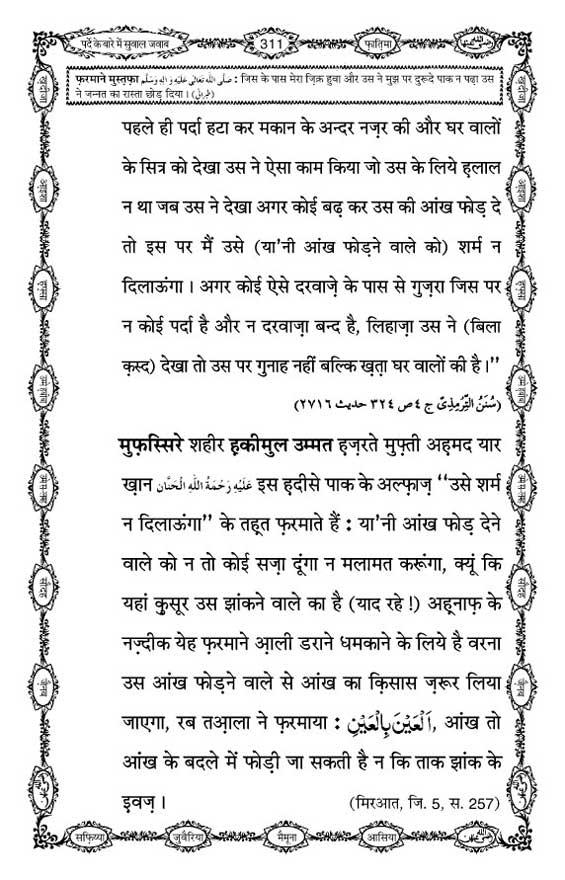 पर्दे के बारे में सुवाल जवाब
311
फ़ातिमा
फ़रमाने मुस्तफ़ा صَلَّى اللهُ تَعَالٰى عَلَيْهِ وَاٰلِهٖ وَسَلَّم : जिस के पास मेरा ज़िक्र हुवा और उस ने मुझ पर दुरूदे पाक न पढ़ा उस
ने जन्नत का रास्ता छोड़ दिया । (طبرانی)
पहले ही पर्दा हटा कर मकान के अन्दर नज़र की और घर वालों
के सित्र को देखा उस ने ऐसा काम किया जो उस के लिये ह़लाल
न था जब उस ने देखा अगर कोई बढ़ कर उस की आंख फोड़ दे
तो इस पर मैं उसे (या'नी आंख फोड़ने वाले को) शर्म न
दिलाऊंगा । अगर कोई ऐसे दरवाज़े के पास से गुज़रा जिस पर
न कोई पर्दा है और न दरवाज़ा बन्द है, लिहाज़ा उस ने (बिला
क़स्द) देखा तो उस पर गुनाह नहीं बल्कि ख़ता घर वालों की है ।''
(سُنَنُ التِّرْمِذِیّ ج ٤ ص ٣٢٤ حديث ٢٧١٦)
मुफ़स्सिरे शहीर ह़कीमुल उम्मत ह़ज़रते मुफ़्ती अह़मद यार
ख़ान عَلَيْهِ رَحْمَةُ اللهِ الْحَنَّان इस ह़दीसे पाक के अल्फ़ाज़ ''उसे शर्म
न दिलाऊंगा'' के तह़्त फ़रमाते हैं : या'नी आंख फोड़ देने
वाले को न तो कोई सज़ा दूंगा न मलामत करूंगा, क्यूं कि
यहां क़ुसूर उस झांकने वाले का है (याद रहे !) अह़्नाफ़ के
नज़्दीक येह फ़रमाने आ़ली डराने धमकाने के लिये है वरना
उस आंख फोड़ने वाले से आंख का क़िसास ज़रूर लिया
जाएगा, रब तआ़ला ने फ़रमाया : اَلْعَيْنَ بِالْعَيْنِ, आंख तो
आंख के बदले में फोड़ी जा सकती है न कि ताक झांक के
इवज़ ।
(मिरआत, जि. 5, स. 257)
सफ़िय्या
जुवैरिया
मैमूना
आसिया